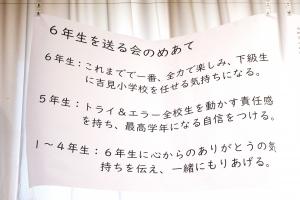 ６年生を送る会のめあて
６年生：これまでで一番、全力で楽しみ、下級生
に吉見小学校を任せる気持ちになる。
５年生：トライ＆エラー全校生を動かす責任感
を持ち、最高学年になる自信をつける。
１～４年生：６年生に心からのありがとうの気
持ちを伝え、一緒にもりあげる。